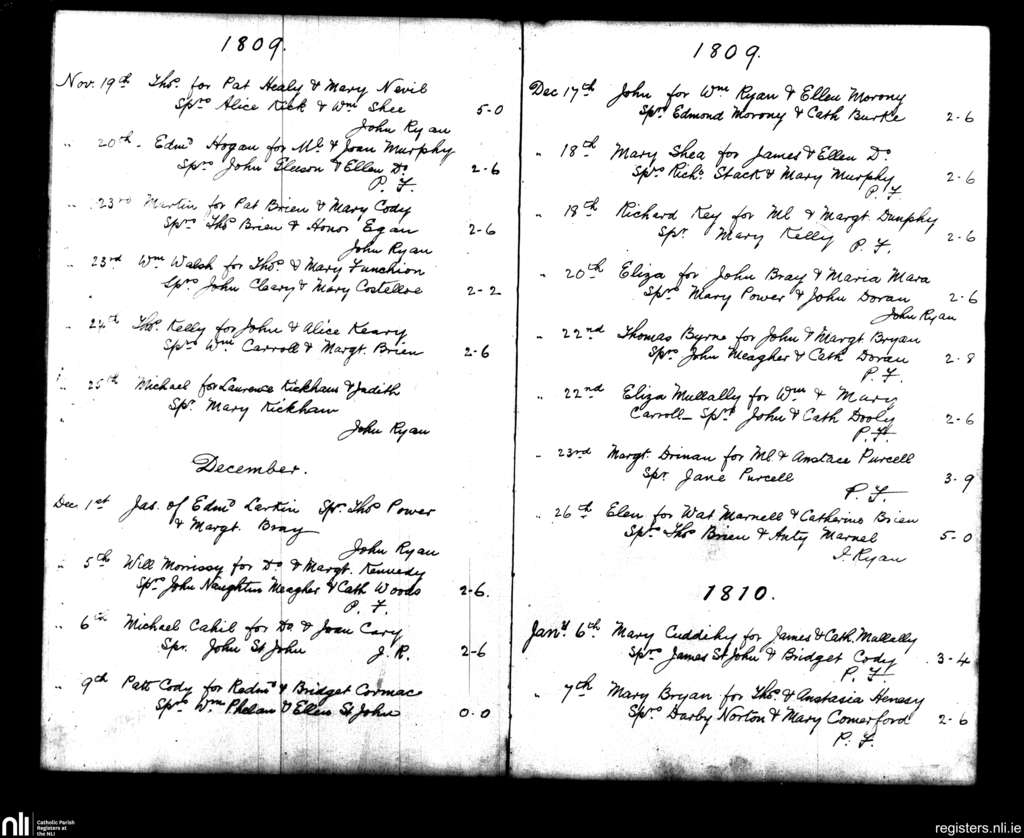 1809.
Nov. 19th Thos. for Pat Healy & Mary Nevil
Sprs Alice Kick & Wm Shee 5-0
John Ryan
" 20th. Edmd Hogan for Ml. & Joan Murphy
Sprs John Gleeson & Ellen Do. 2-6
P. F.
" 23rd Martin for Pat Brien & Mary Cody
Sprs Thos Brien & Honor Egan 2-6
John Ryan
" 23rd Wm Walsh for Thos. & Mary Funchion
Sprs John Cleary & Mary Costelloe 2-2
" 24th Thos. Kelly for John & Alice Keary
Sprs Wm Carroll & Margt. Brien 2-6
" 25th Michael for Laurence Kickham & Judith
Spr. Mary Kickham
John Ryan
December.
Dec. 1st Jas. of Edmd Larkin Sprs Thos Power
& Margt. Bray
John Ryan
" 5th Will Morrissy for Do. & Margt. Kennedy
Sprs John Naughtin Meagher & Cath Woods 2-6.
P. F.
" 6th Michael Cahil for Do & Joan Cary
Spr. John St John J. R. 2-6
" 9th Patt Cody for Redmd & Bridget Cormac
Sprs Wm Phelan & Ellen St John 0.0
1809.
Dec 17th John for Wm Ryan & Ellen Morony
Sprs Edmond Morony & Cath Burke 2-6
" 18th Mary Shea for James & Ellen Do.
Sprs Richd. Stack & Mary Murphy 2-6
P. F
" 18th Richard Key for Ml & Margt Dunphy
Spr. Mary Kelly P. F. 2-6
" 20th Eliza for John Bray & Maria Mara
Sprs Mary Power & John Doran 2-6
John Ryan
" 22nd Thomas Byrne for John & Margt Bryan
Sprs John Meagher & Cath Doran 2-8
P. F.
" 22nd Eliza Mullally for Wm & Mary
Carroll_ Sprs John & Cath Dooly 2-6
P. F.
" 23rd Margt. Drinan for Ml & Anstace Purcell
Spr Jane Purcell 3-9
P. F.
" 26th Elen for Wat Marnell & Catherine Brien
Sprs Thos Brien & Anty Marnel 5-0
J. Ryan
1810.
Jany 6th. Mary Cuddihy for James & Cath. Mullally
Sprs James St John & Bridget Cody 3-4
P. F
" 7th Mary Bryan for Thos & Anastasia Henesy
Sprs Darby Norton & Mary Comerford 2-6
P. F.
nli Catholic Parish
Registers at
the NLI
registers.nli.ie